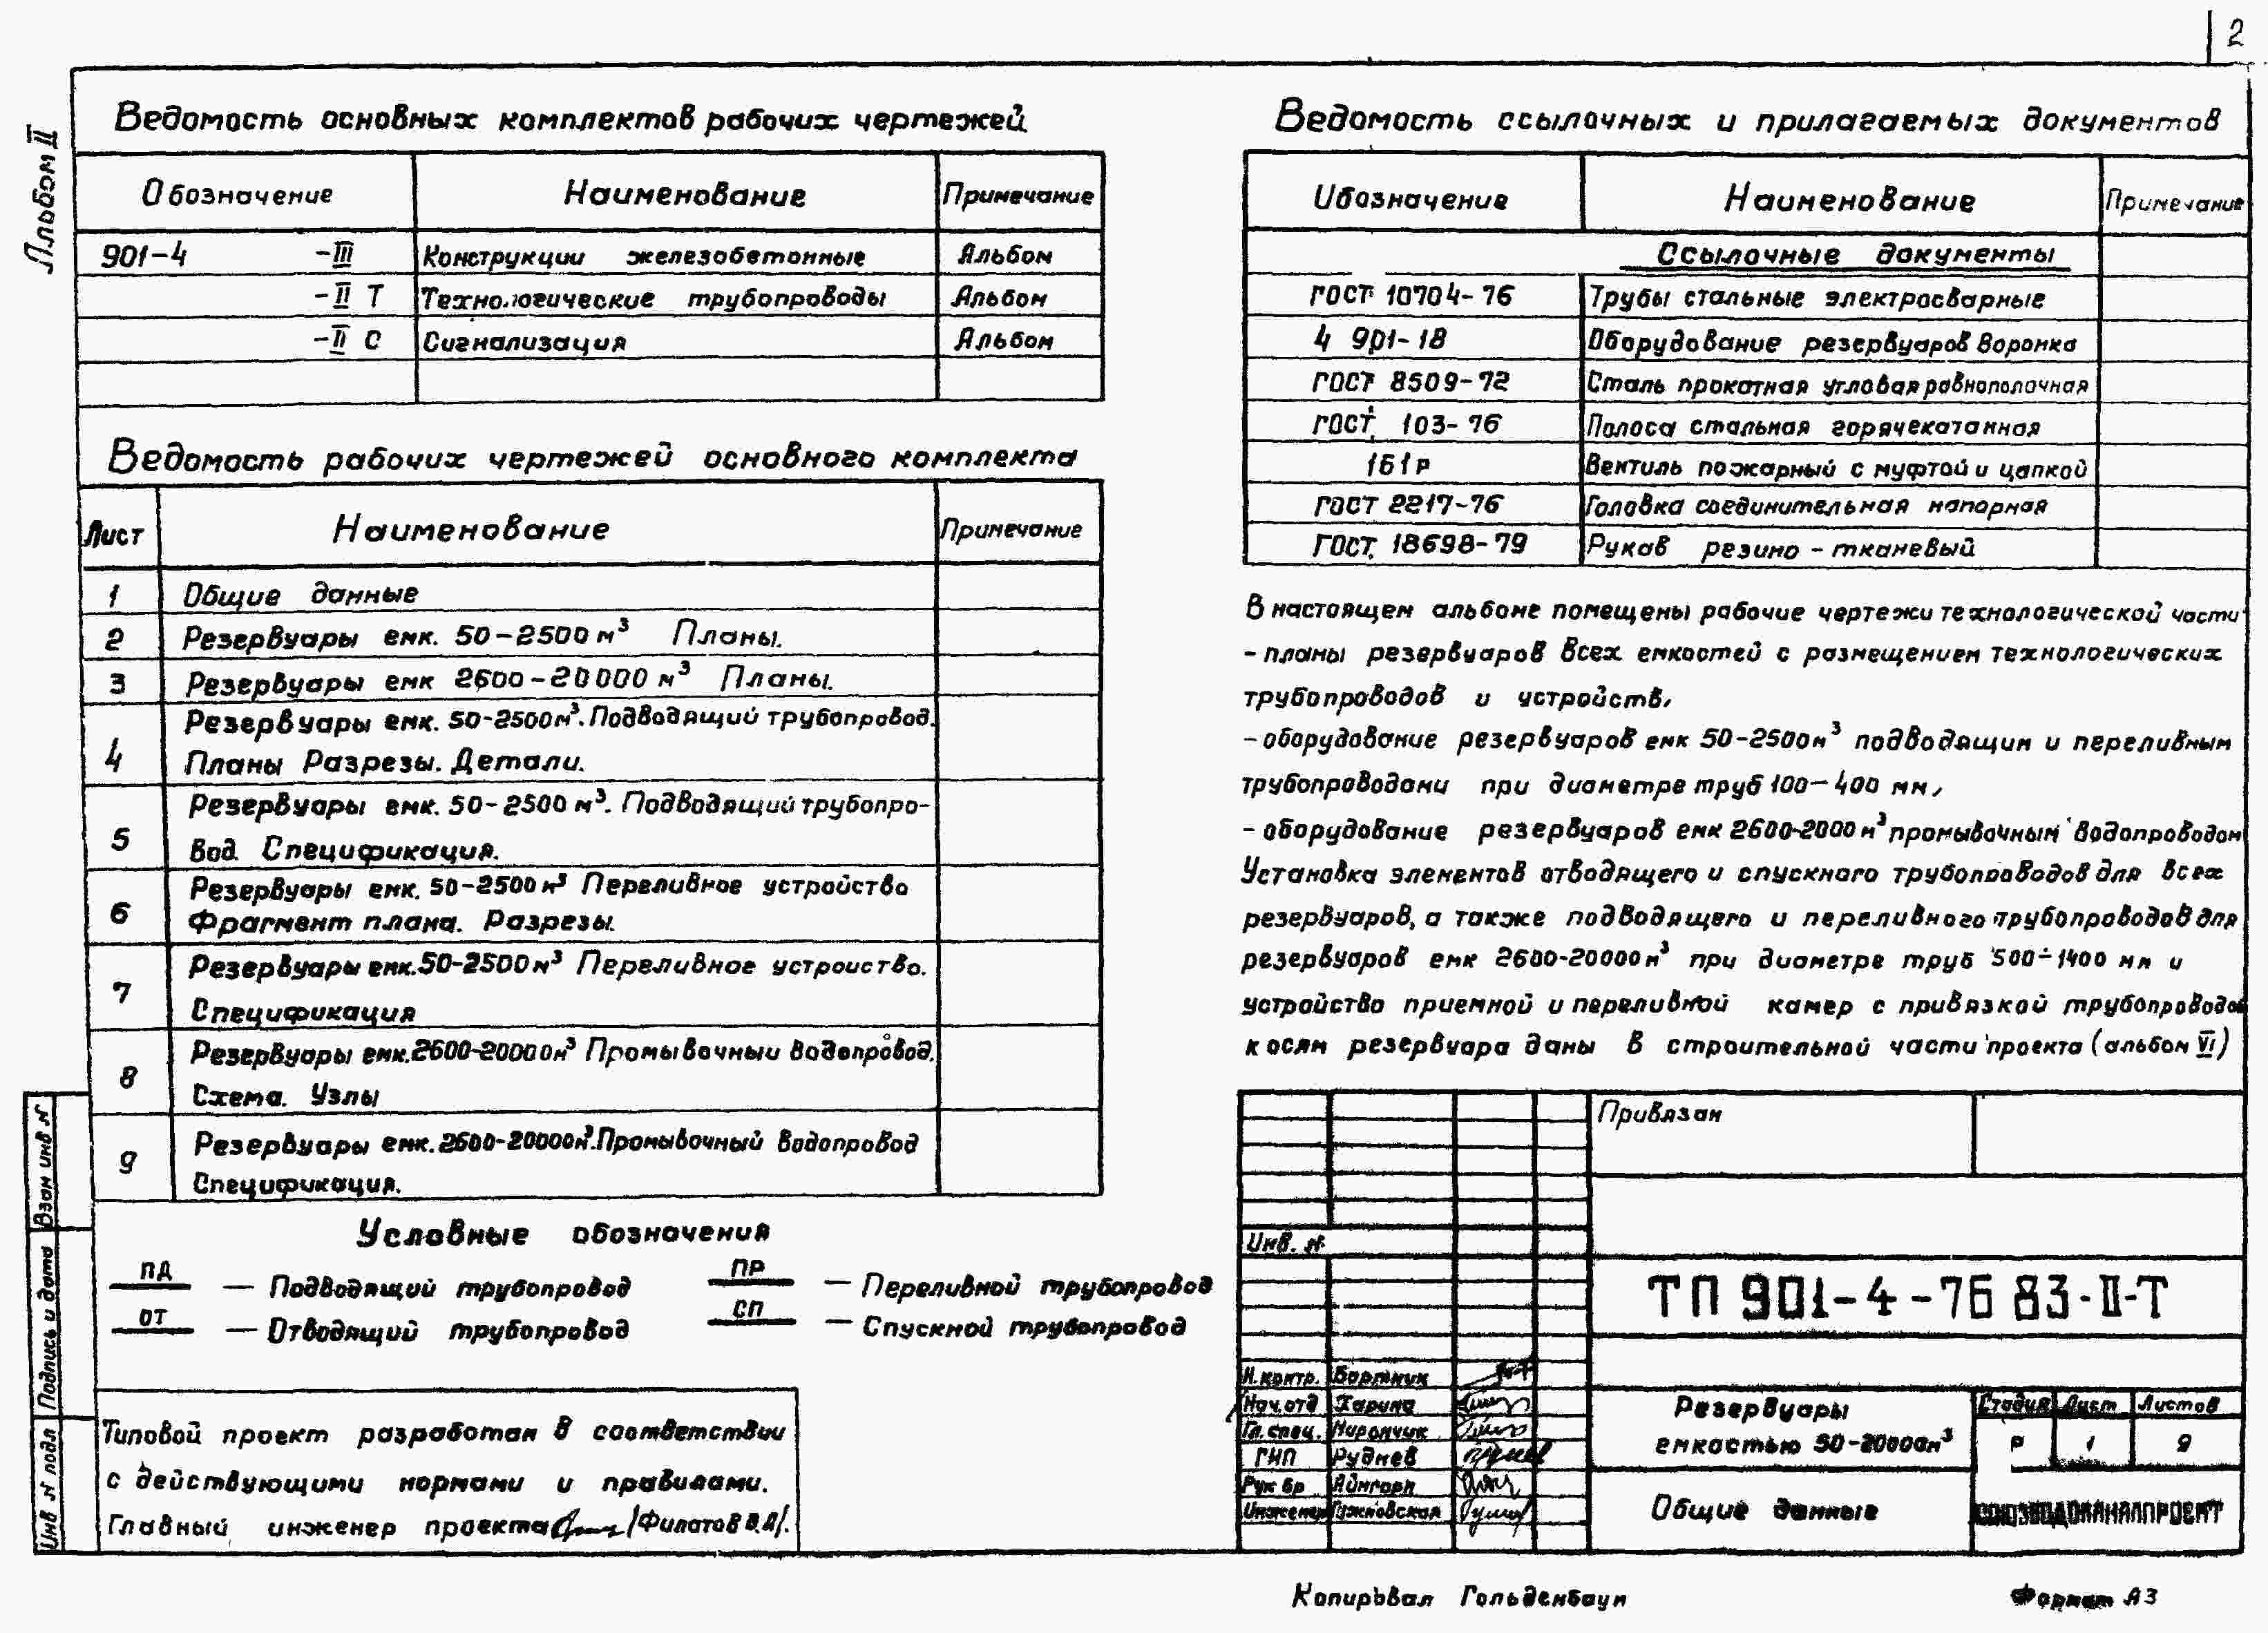 2
Альбом II
Ведомость основных комплектов рабочих чертежей
Обозначение Наименование Примечание
901-4 -III Конструкции железобетонные Альбом
-II Т Технологические трубопроводы Альбом
-II С Сигнализация Альбом
Ведомость рабочих чертежей основного комплекта
Лист Наименование Примечание
1 Общие данные
2 Резервуары емк. 50-2500 м³ Планы.
3 Резервуары емк 2600-20000 м³ Планы.
4 Резервуары емк. 50-2500м³. Подводящий трубопровод.
Планы Разрезы. Детали.
5 Резервуары емк. 50-2500 м³. Подводящий трубопро-
вод. Спецификация.
6 Резервуары емк. 50-2500м³ Переливное устройство
Фрагмент плана. Разрезы.
7 Резервуары емк. 50-2500м³ Переливное устройство.
Спецификация
8 Резервуары емк. 2600-20000м³ Промывочный водопровод.
Схема. Узлы
9 Резервуары емк. 2600-20000м³. Промывочный водопровод
Спецификация.
Условные обозначения
ПД — Подводящий трубопровод
ОТ — Отводящий трубопровод
ПР — Переливной трубопровод
СП — Спускной трубопровод
Типовой проект разработан в соответствии
с действующими нормами и правилами.
Главный инженер проекта /Филатов В.А/.
Взам инв N
Подпись и дата
Инв N подл
Ведомость ссылочных и прилагаемых документов
Обозначение Наименование Примечание
Ссылочные документы
ГОСТ 10704-76 Трубы стальные электросварные
4 901-18 Оборудование резервуаров Воронка
ГОСТ 8509-72 Сталь прокатная угловая равнополочная
ГОСТ 103-76 Полоса стальная горячекатанная
1б1р Вентиль пожарный с муфтой и цапкой
ГОСТ 2217-76 Головка соединительная напорная
ГОСТ 18698-79 Рукав резино-тканевый
В настоящем альбоме помещены рабочие чертежи технологической части
- планы резервуаров всех емкостей с размещением технологических
трубопроводов и устройств,
- оборудование резервуаров емк 50-2500м³ подводящим и переливным
трубопроводами при диаметре труб 100-400 мм,
- оборудование резервуаров емк 2600-2000м³ промывочным водопроводом
Установка элементов отводящего и спускного трубопроводов для всех
резервуаров, а также подводящего и переливного трубопроводов для
резервуаров емк 2600-20000м³ при диаметре труб 500÷1400 мм и
устройство приемной и переливной камер с привязкой трубопроводов
к осям резервуара даны в строительной части проекта (альбом VI)
Привязан
Инв. N
ТП 901-4-76 83-II-Т
Н. контр. Бортник
Нач. отд Харина
Гл. спец. Мирончик
ГИП Руднев
Рук бр Айнгорн
Инженер Гужновская
Резервуары
емкостью 50-20000м³
Стадия Лист Листов
Р 1 9
Общие данные
СОЮЗВОДОКАНАЛПРОЕКТ
Копировал Гольденбаум
Формат А3